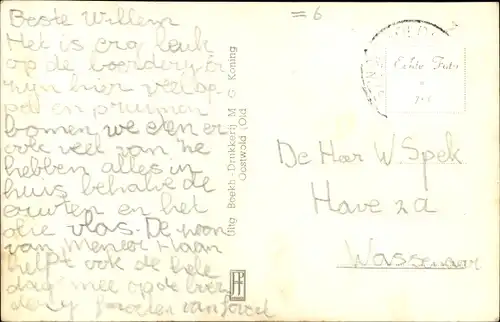 = 6
Beste Willem
Het is erg leuk
op de boerdery. Er
zyn hier veel ap
pel en pruimen
bomen, we eten er
ook veel van we
hebben alles in
huis behalve de
erwten en het
olie vlas. De zoon
van Meneer Haan
helpt ook de hele
dag mee op de boer
dery groeten van
Uitg Boekh-Drukkerij M G Koning
Oostwold (Old
Echte Foto
De Heer W. Spek
Have 2a
Wassenaar